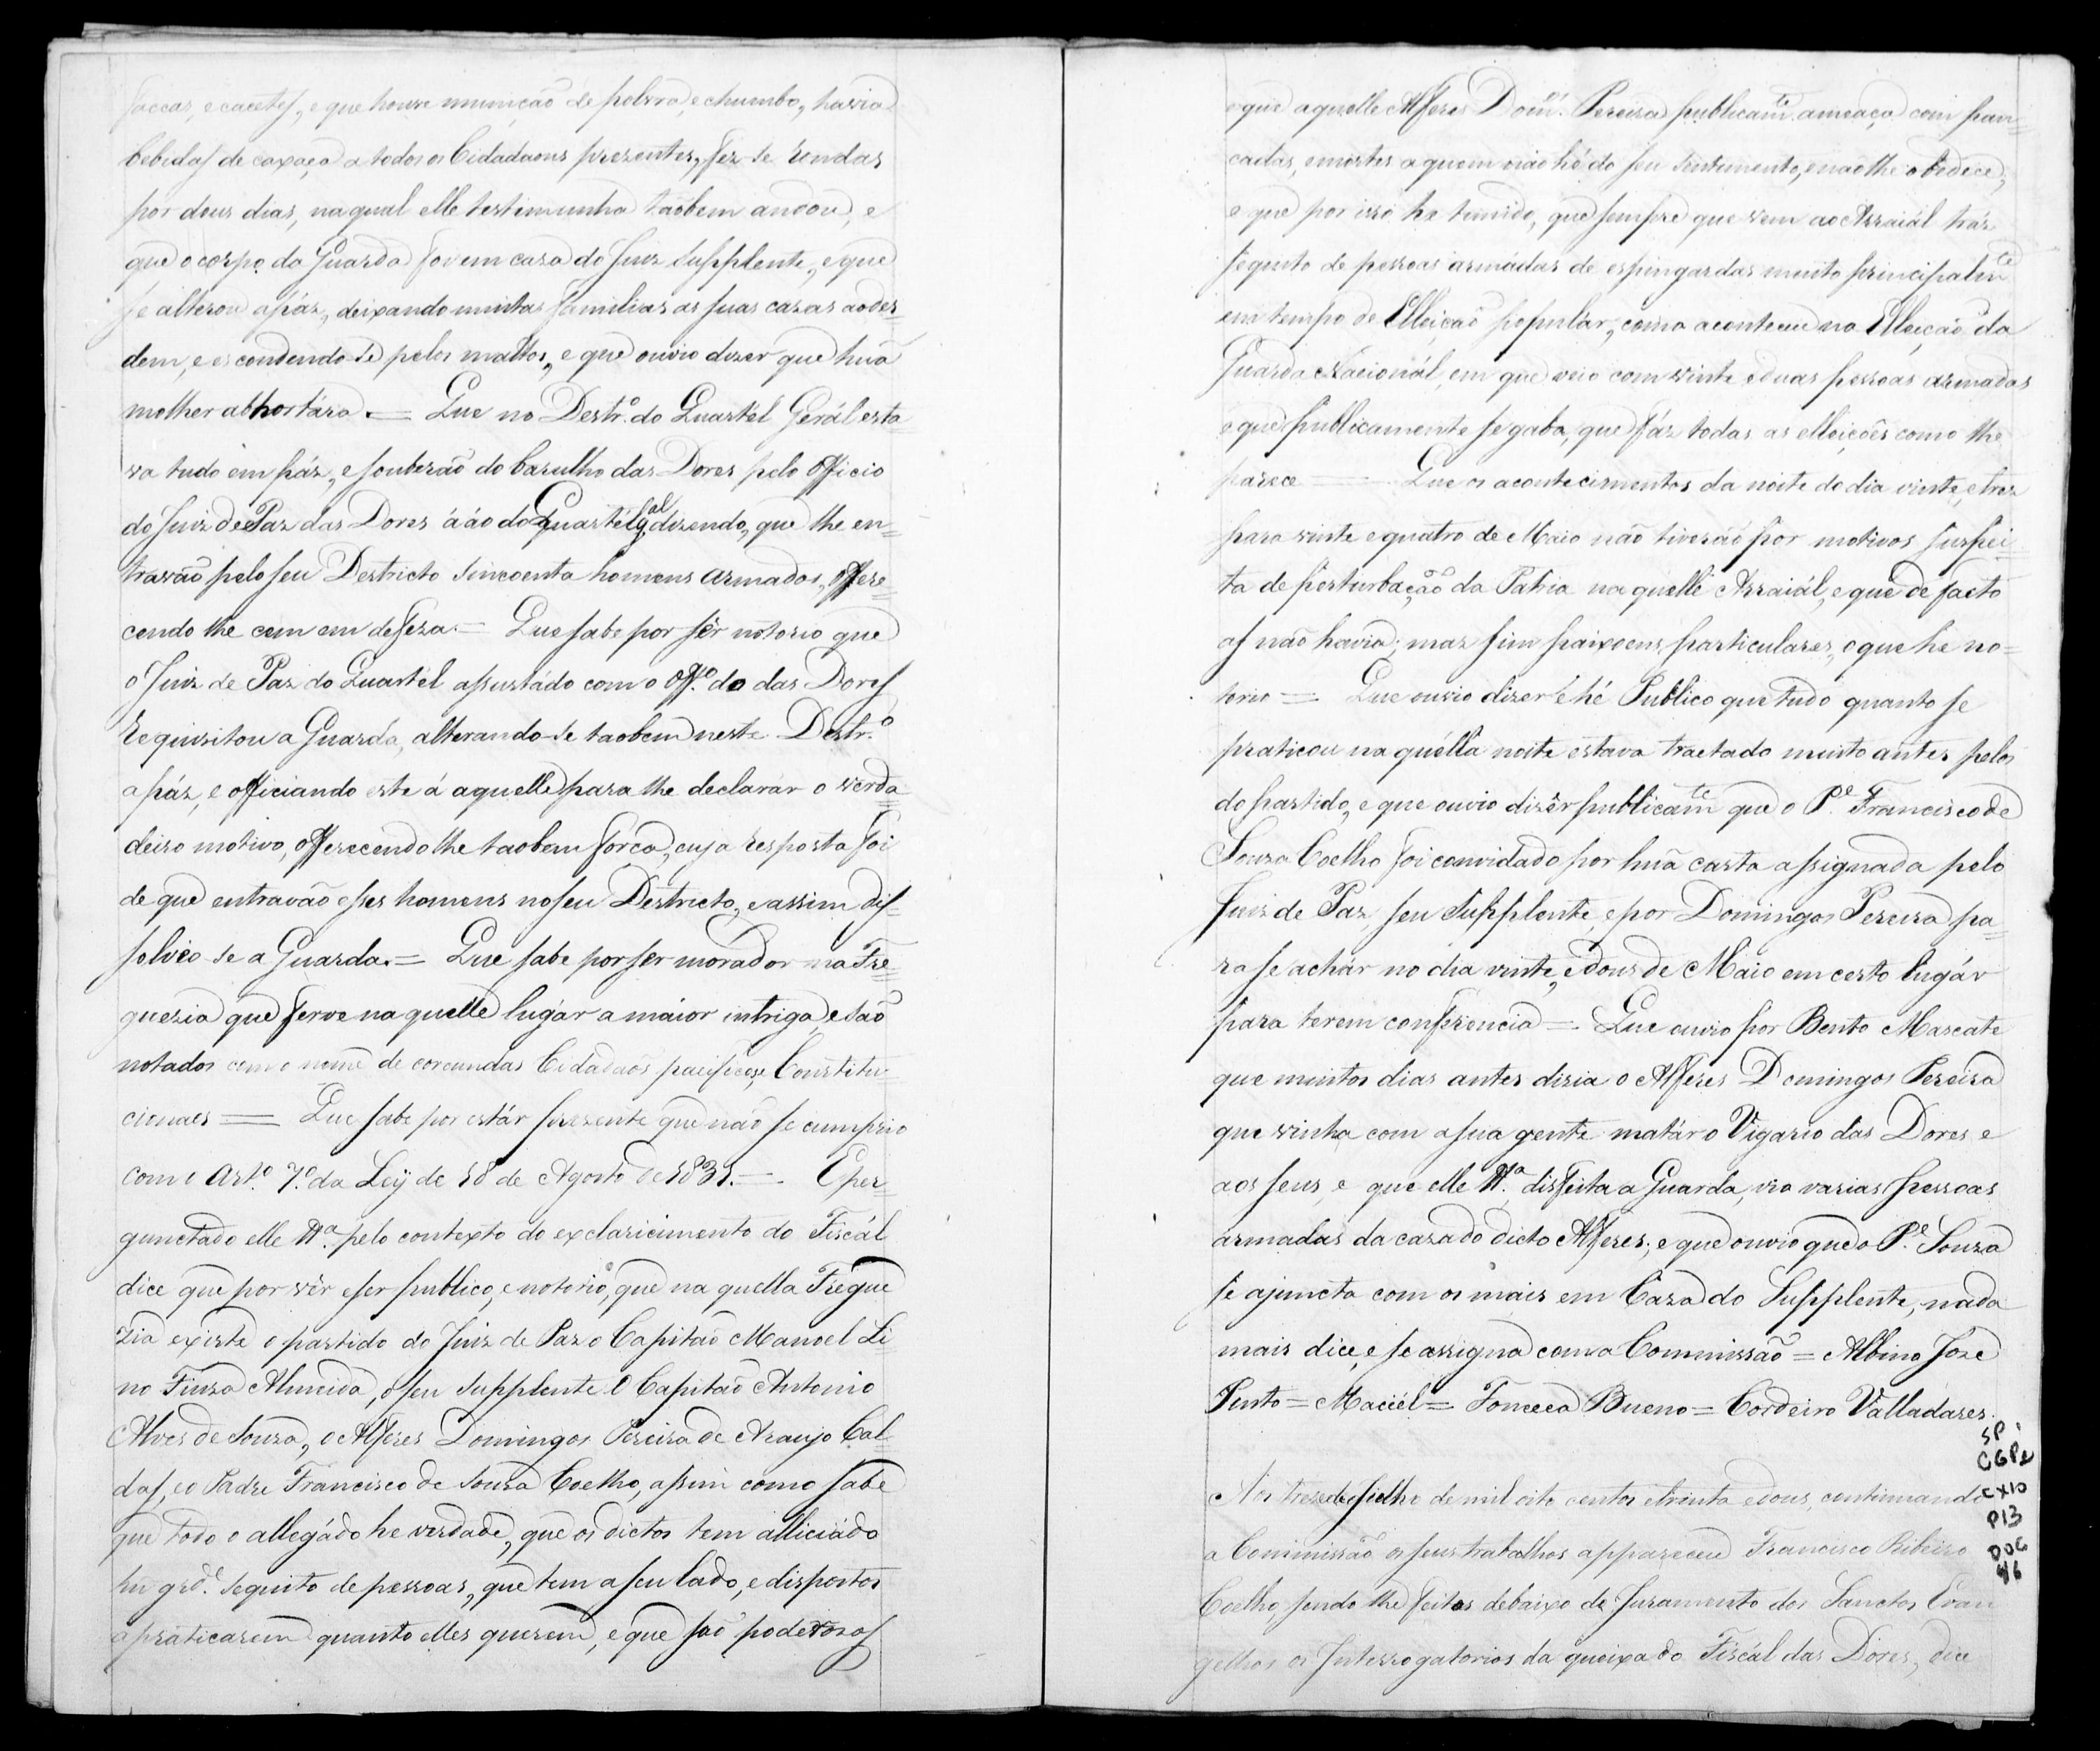 faccas, e cacetes, e que houve munição de polvra, e chumbo, havia
bebidas de caxaça a todos os Cidadaons prezentes, fez se rondas
por dous dias, na qual elle testimunha taobem andou, e
que o corpo da Guarda foi em caza do Juiz Supplente, e que
se alterou a páz, deixando muitas familias as suas cazas ao des=
dem, e escondendo se pelos mattos, e que ouvio dizer que huã
molher abhortára. = Que no Destr.º do Quartél Gerál esta=
va tudo em páz, e souberaõ do barulho das Dores pelo Officio
do Juiz de Paz das Dores á áo do Quartél g.al dizendo, que lhe en=
travaõ pelo seu Destricto sincoenta homens armados, offere=
cendo lhe cem em defeza. = Que sabe por sêr notorio que
o Juiz de Paz do Quartél assustádo com o Off.º do das Dores
requizitou a Guarda, alterando-se taobem neste Destr.º
a páz, e officiando este á aquelle para lhe declarár o verda=
deiro motivo, offerecendo lhe taobem força, cuja resposta foi
de que entravaõ esses homens no seu Destricto, e assim dis=
solveo-se a Guarda. = Que sabe por ser morador na Fre=
guezia que ferve na quelle lugár a maior intriga, e saõ
notados com o nome de corcundas Cidadaõs pacificos, e Constitu=
cionaes = Que sabe por estár prezente que naõ se cumprio
com o Art.º 7.º da Leÿ de 18 de Agosto de 1831. = E per=
gunctado elle Tt.ª pelo contexto do exclaricimento do Fiscál
dice que por vêr e ser publico, e notorio, que na quella Fregue
zia existe o partido do Juiz de Paz o Capitaõ Manoel Li
no Fiuza Almeida, o seu Supplente o Capitaõ Antonio
Alves de Souza, o Alferes Domingos Pereira de Araujo Cal=
das, e o Padre Francisco de Souza Coelho, assim como sabe
que todo o allegádo he verdade, que os dictos tem alliciádo
hu grd.e sequito de pessoas, que tem a seu lado, e dispostos
a praticarem quanto elles querem, e que saõ poderozos
e que aquelle Alferes Dom.os Pereira publicam.te ameaça com pan=
cadas, e mortes a quem naõ hé do seu sentimento, e naõ lhe obedece,
e que por isso he timido, que sempre que vem ao Arraiál tráz
sequito de pessoas armádas de espingardas muito principalm.te
em tempo de Elleiçaõ populár, como aconteceu na Elleiçaõ da
Guarda Nacionál, em que veio com vinte e duas pessoas armadas
e que publicamente se gaba, que fáz todas as elleiçoês como lhe
parece = Que os acontecimentos da noite do dia vinte, e trez
para vinte e quatro de Maio naõ tiveraõ por motivos suspei
ta de perturbaçaõ da Patria na quelle Arraiál, e que de facto
as naõ havia; mas sim paixoens particulares, o que he no=
torio = Que ouvio dizer e hé Publico que tudo quanto se
praticou na quélla noite estava tractado muito antes pelos
do partido, e que ouvio dizêr publicam.te que o P.e Francisco de
Souza Coelho foi convidado por huã carta assignada pelo
Juiz de Paz, seu Supplente, e por Domingos Pereira pa=
ra se achár no dia vinte, e dous de Maio em certo lugár
para terem conferencia = Que ouvio por Bento Mascate
que muitos dias antes dizia o Alferes Domingos Pereira
que vinha com a sua gente matár o Vigario das Dores e
aos seus, e que elle Tt.ª disfeita a Guarda, vio varias pessoas
armadas da caza do dicto Alferes; e que ouvio que o P.e Souza
se ajuncta com os mais em Caza do Supplente, nada
mais dice, e se assigna com a Commissaõ = Albino Joze
Pinto = Maciél = Fonceca Bueno = Cordeiro Valladares.
SP
CGP2
CX10
P13
DOC
46
Aos treze de Julho de mil oito centos e trinta e dous, continuando
a Commissaõ os seus trabalhos appareceu Francisco Ribeiro
Coelho sendo lhe feitos debaixo de Juramento dos Sanctos Evan
gelhos os Interrogatorios da queixa do Fiscál das Dores, dice